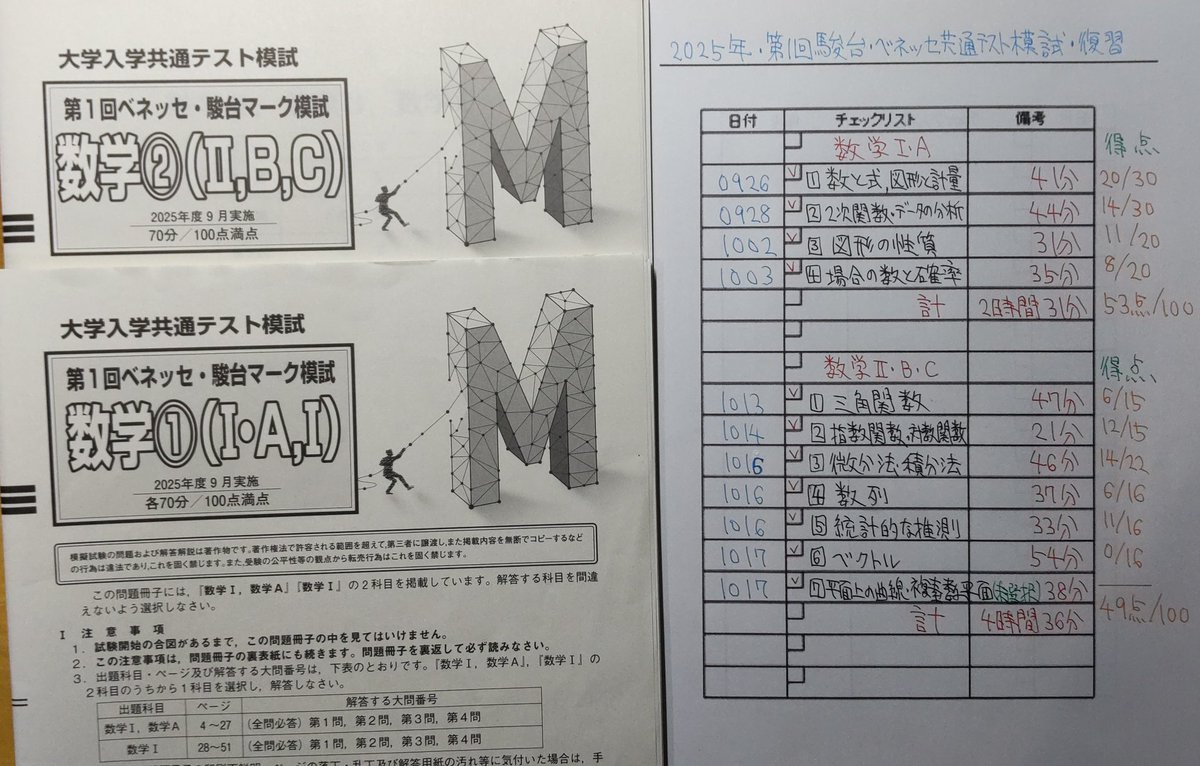 大学入学共通テスト模試
第1回ベネッセ・駿台マーク模試
数学②(Ⅱ,B,C)
2025年度9月実施
70分/100点満点
大学入学共通テスト模試
第1回ベネッセ・駿台マーク模試
数学①(Ⅰ・A,Ⅰ)
2025年度9月実施
各70分/100点満点
模擬試験の問題および解答解説は著作物です。著作権法で許容される範囲を超えて,第三者に譲渡し,また掲載内容を無断でコピーするなど
の行為は違法であり,これを固く禁じます。また,受験の公平性等の観点から転売行為はこれを固く禁じます。
この問題冊子には,『数学Ⅰ,数学A』『数学Ⅰ』の2科目を掲載しています。解答する科目を間違
えないよう選択しなさい。
Ⅰ 注意事項
1. 試験開始の合図があるまで,この問題冊子の中を見てはいけません。
2. この注意事項は,問題冊子の裏表紙にも続きます。問題冊子を裏返して必ず読みなさい。
3. 出題科目・ページ及び解答する大問番号は,下表のとおりです。『数学Ⅰ,数学A』,『数学Ⅰ』の
2科目のうちから1科目を選択し,解答しなさい。
出題科目 ページ 解答する大問番号
数学Ⅰ,数学A 4～27 (全問必答)第1問,第2問,第3問,第4問
数学Ⅰ 28～51 (全問必答)第1問,第2問,第3問,第4問
2025年・第1回駿台・ベネッセ共通テスト模試・復習
日付 チェックリスト 備考
数学Ⅰ・A 得点
0926 ✓ 1 数と式,図形と計量 41分 20/30
0928 ✓ 2 2次関数・データの分析 44分 14/30
1002 ✓ 3 図形の性質 31分 11/20
1003 ✓ 4 場合の数と確率 35分 8/20
計 2時間31分 53点/100
数学Ⅱ・B・C 得点
1013 ✓ 1 三角関数 47分 6/15
1014 ✓ 2 指数関数・対数関数 21分 12/15
1016 ✓ 3 微分法・積分法 46分 14/22
1016 ✓ 4 数列 37分 6/16
1016 ✓ 5 統計的な推測 33分 11/16
1017 ✓ 6 ベクトル 54分 0/16
1017 ✓ 7 平面上の曲線・複素数平面(未選択) 38分
計 4時間36分 49点/100